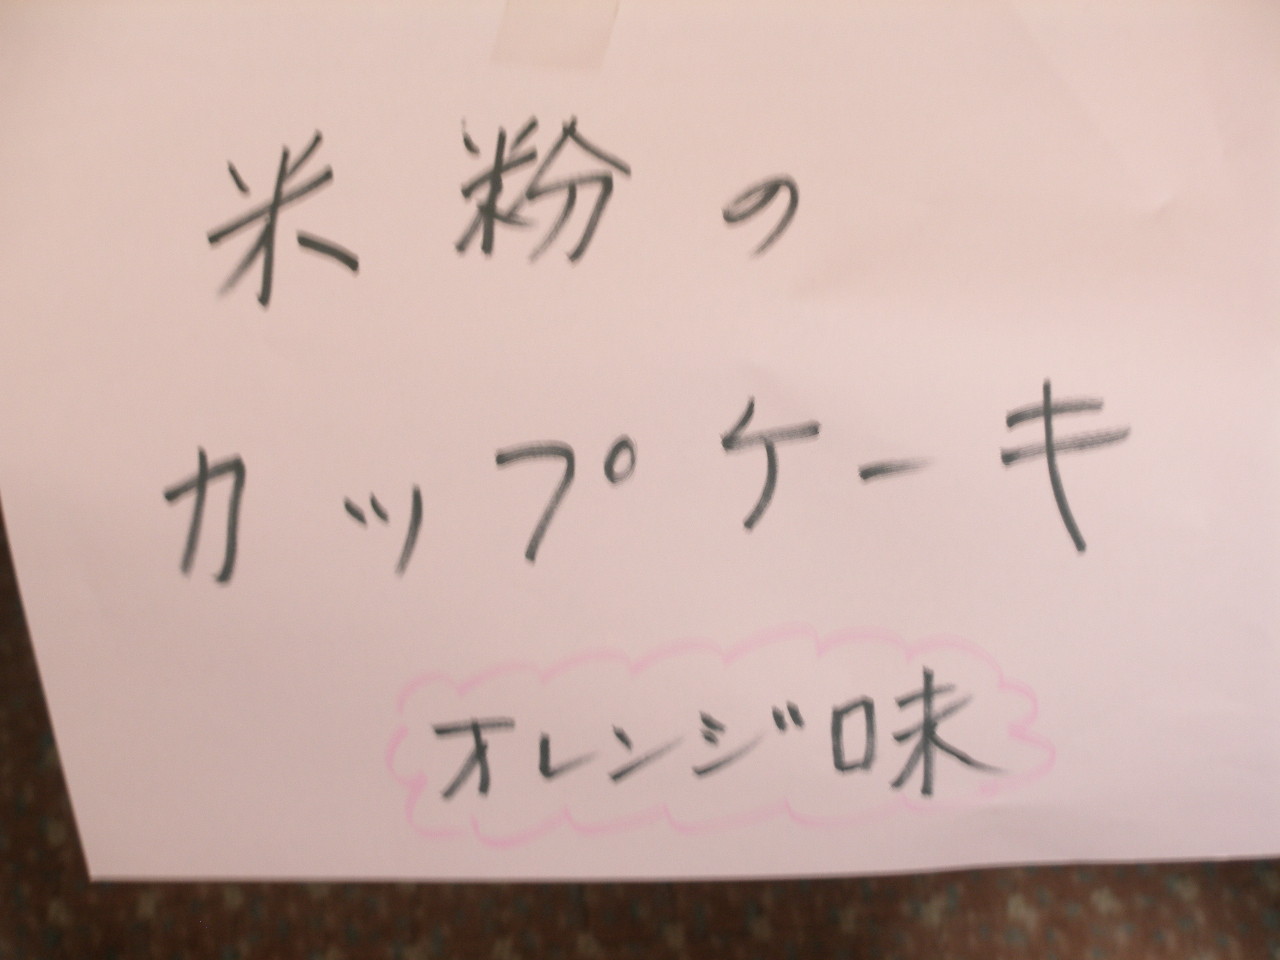 米粉の
カップケーキ
オレンジ味